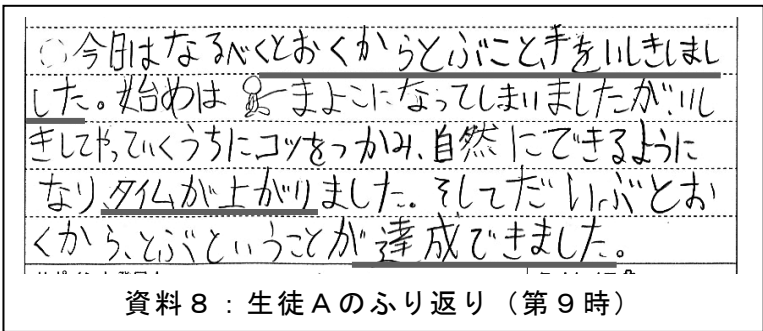 ○今日はなるべくとおくからとぶこと、手をいしきしまし
した。始めは まよこになってしまいましたが、いし
きしてやっていくうちにコツをつかみ、自然にできるように
なり、タイムが上がりました。そしてだいぶとお
くから、とぶということが達成できました。
資料8：生徒Aのふり返り（第9時）